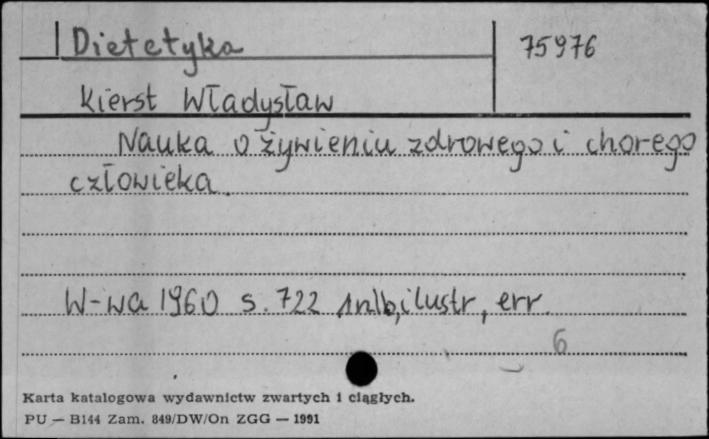 Dietetyka 75976
Kierst Władysław
Nauka o żywieniu zdrowego i chorego
człowieka.
W-wa 1960 s. 722 1nlb, ilustr, err.
6
Karta katalogowa wydawnictw zwartych i ciągłych.
PU — B144 Zam. 849/DW/On ZGG — 1991